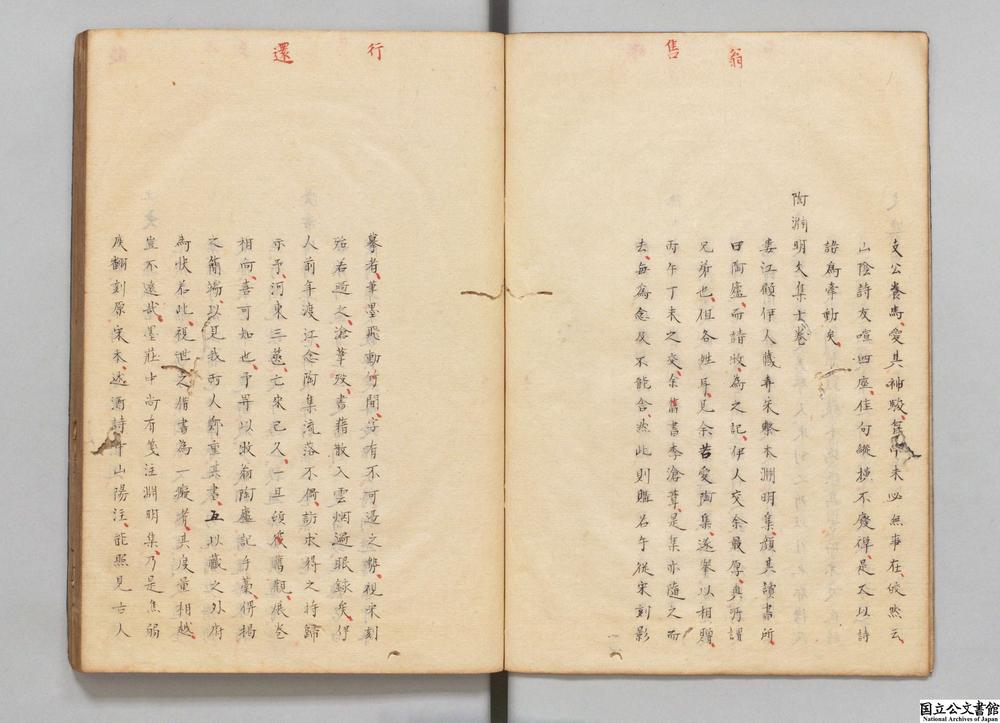 翁
售
行
還
支公養馬愛其神駿亦未必無事在皎然云
山陰詩友喧四座佳句縱橫不廢禪是又以詩
語為牽動矣
陶淵明文集十卷
婁江顧伊人藏弆宋槧本淵明集顏其讀書所
曰陶廬而請牧為之記伊人交余最厚真所謂
兄弟也但各姓耳見余苦愛陶集遂舉以相贈
丙午丁未之交余舊書季滄葦是集亦隨之而
去每為念及不能舍然此則購名手從宋刻影
摹者筆墨飛動竹間字有不可過之勢視宋刻
殆若過之滄葦歿書籍散入雲烟過眼錄矣伊
人前年渡江念陶集流落不偶訪求得之持歸
示予河東三篋亡來已久一旦頓舊觀展卷
相向喜可知也予畀以牧翁陶廬記手藁得揭
之簡端以見我兩人鄭重其書互以藏之外府
為快若此視世之借書為一癡者其度量相越
豈不遠哉墨莊中尚有箋注淵明集乃是焦弱
侯翻刻原宋本述酒詩有山陽注能照見古人
国立公文書館
National Archives of Japan